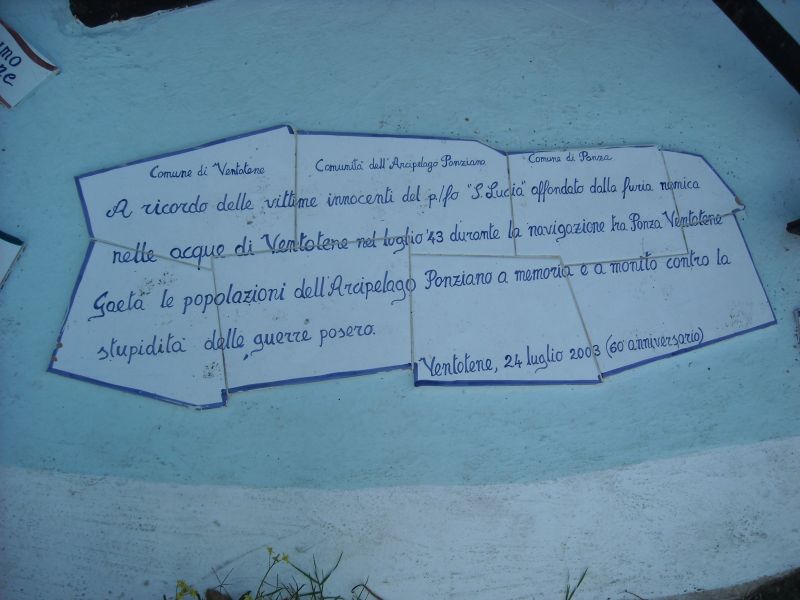 Comune di Ventotene Comunità dell'Arcipelago Ponziano Comune di Ponza
A ricordo delle vittime innocenti del p/fo "S. Lucia" affondato dalla furia nemica
nelle acque di Ventotene nel luglio '43 durante la navigazione tra Ponza Ventotene
Gaeta le popolazioni dell'Arcipelago Ponziano a memoria e a monito contro la
stupidità delle guerre posero.
Ventotene, 24 luglio 2003 (60 anniversario)